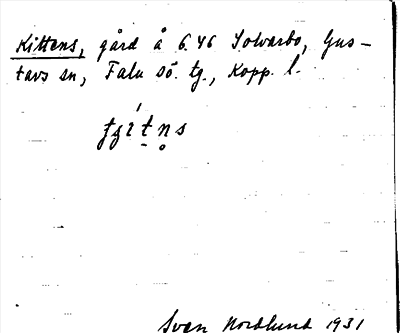 Kittens, gård å 6.46 Solvarbo, Gus-
tavs sn, Falu sö. tg., Kopp. l.
Sven Nordlund 1931